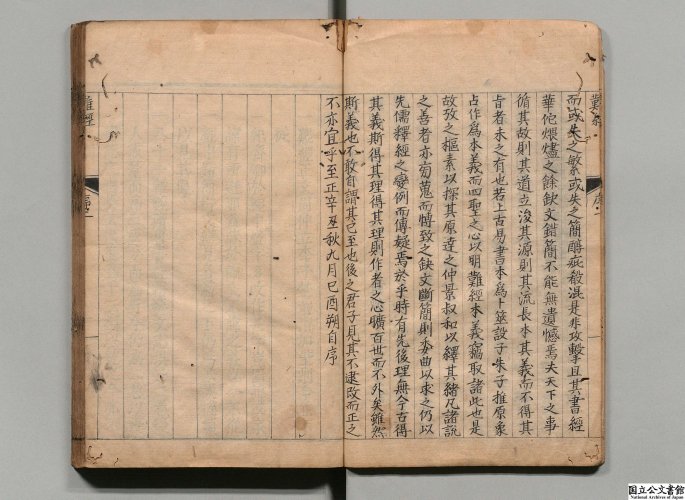 難經
序二
而或失之繁或失之簡醇疵殽混是非攻擊且其書經
華佗煨燼之餘缺文錯簡不能無遺憾焉夫天下之事
循其故則其道立浚其源則其流長本其義而不得其
旨者未之有也若上古易書本爲卜筮設子朱子推原象
占作爲本義而四聖之心以明難經本義竊取諸此也是
故攷之樞素以探其原達之仲景叔和以繹其緒凡諸說
之善者亦旁蒐而博致之缺文斷簡則委曲以求之仍以
先儒釋經之變例而傳疑焉於乎時有先後理無今古得
其義斯得其理得其理則作者之心曠百世而不外矣雖然
斯義也不敢自謂其已至也後之君子見其不逮改而正之
不亦宜乎至正辛丑秋九月己酉朔自序
難經
序二
国立公文書館
National Archives of Japan